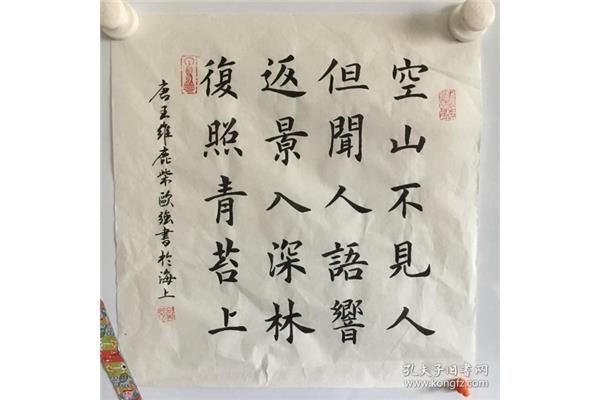 空山不見人
但聞人語響
返景入深林
復照青苔上
唐王維鹿柴歐強書於海上
孔夫子旧书网
www.kongfz.com